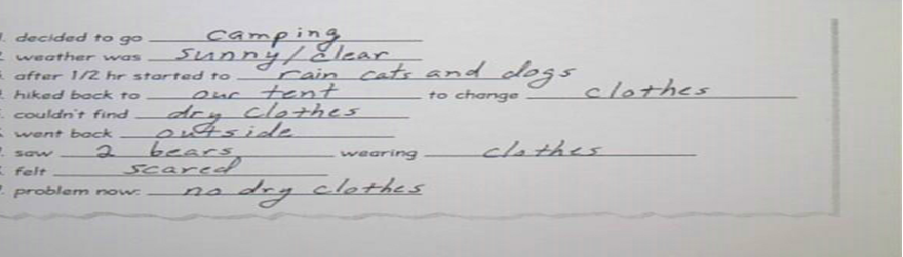 decided to go camping
weather was sunny/clear
after 1/2 hr started to rain cats and dogs
hiked back to our tent to change clothes
couldn't find dry clothes
went back outside
saw 2 bears wearing clothes
felt scared
problem now: no dry clothes